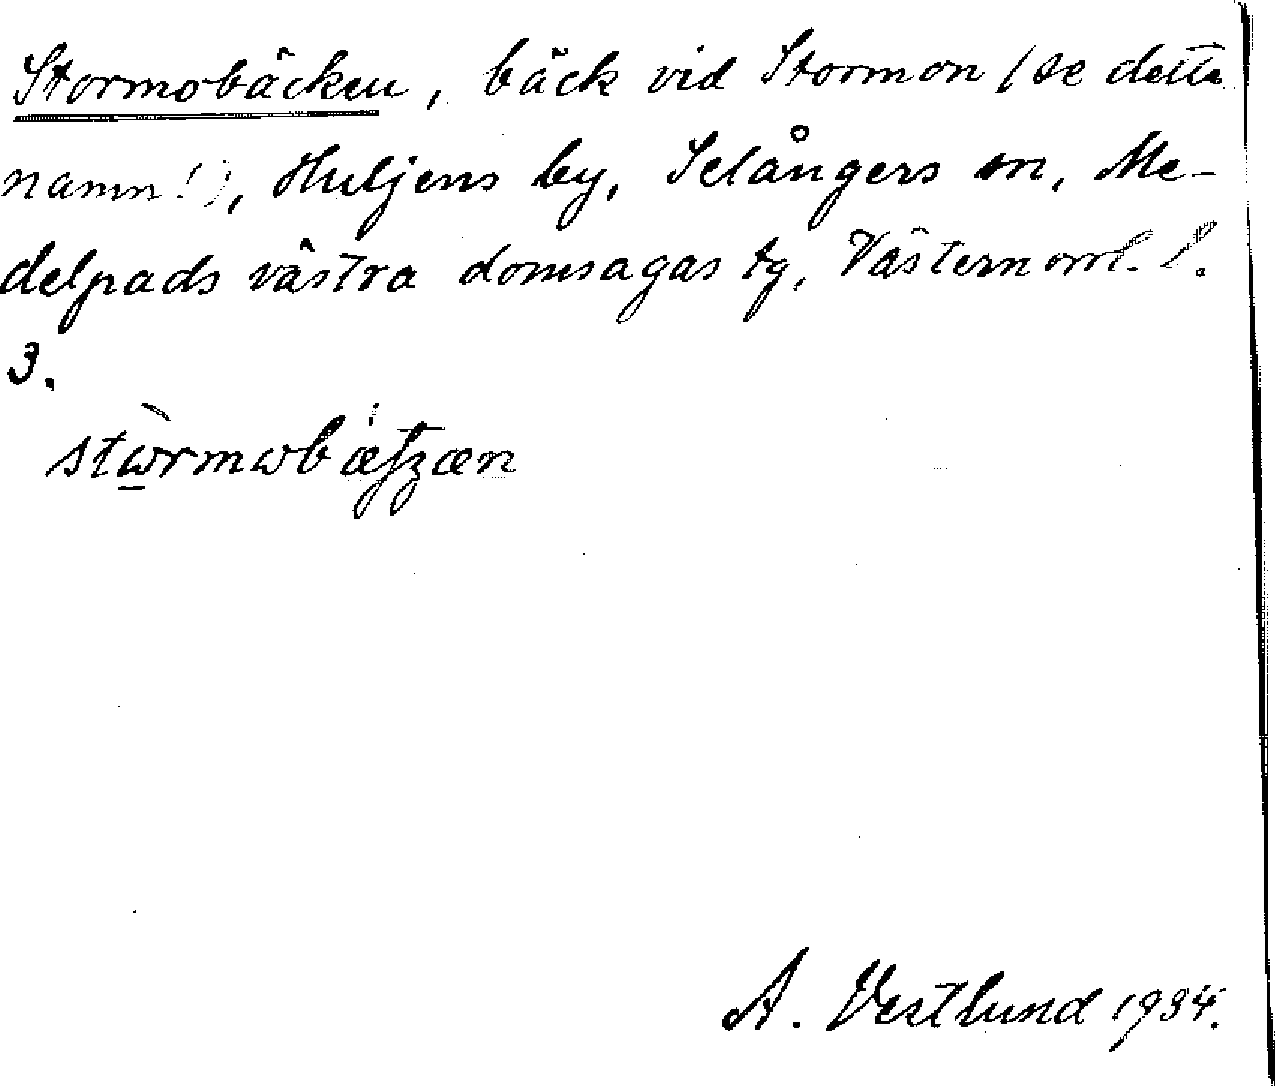 Stormobäcken, bäck vid Stormon (se detta
namn!), Huljens by, Selångers sn, Me-
delpads västra domsagas tg, Västernorrl. l.
3.
stωrmωbæʃʒæn
A. Vestlund 1934.